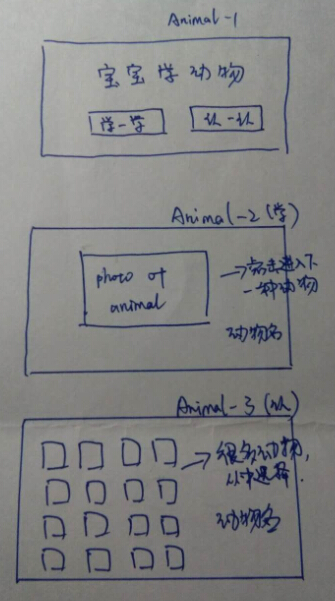 Animal-1
宝宝学动物
学一学
认一认
Animal-2 (学)
photo of
animal
→点击进入下
一种动物
动物名
Animal-3 (认)
→很多动物,
从中选择.
动物名